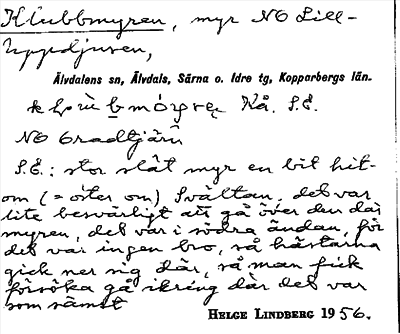 Klubbmyren, myr NO Lill-
Uppedjusen,
Älvdalens sn, Älvdals, Särna o. Idre tg, Kopparbergs län.
Kå. S.E.
NO Gradtjärn
S.E.: stor slät myr en bit hit-
om (= öster om) Svältan, det var
lite besvärligt att gå över den där
myren, det var i södra ändan, för
det var ingen bro, så hästarna
gick ner sig där, så man fick
försöka gå ikring där det var
som sämst
HELGE LINDBERG 1956.